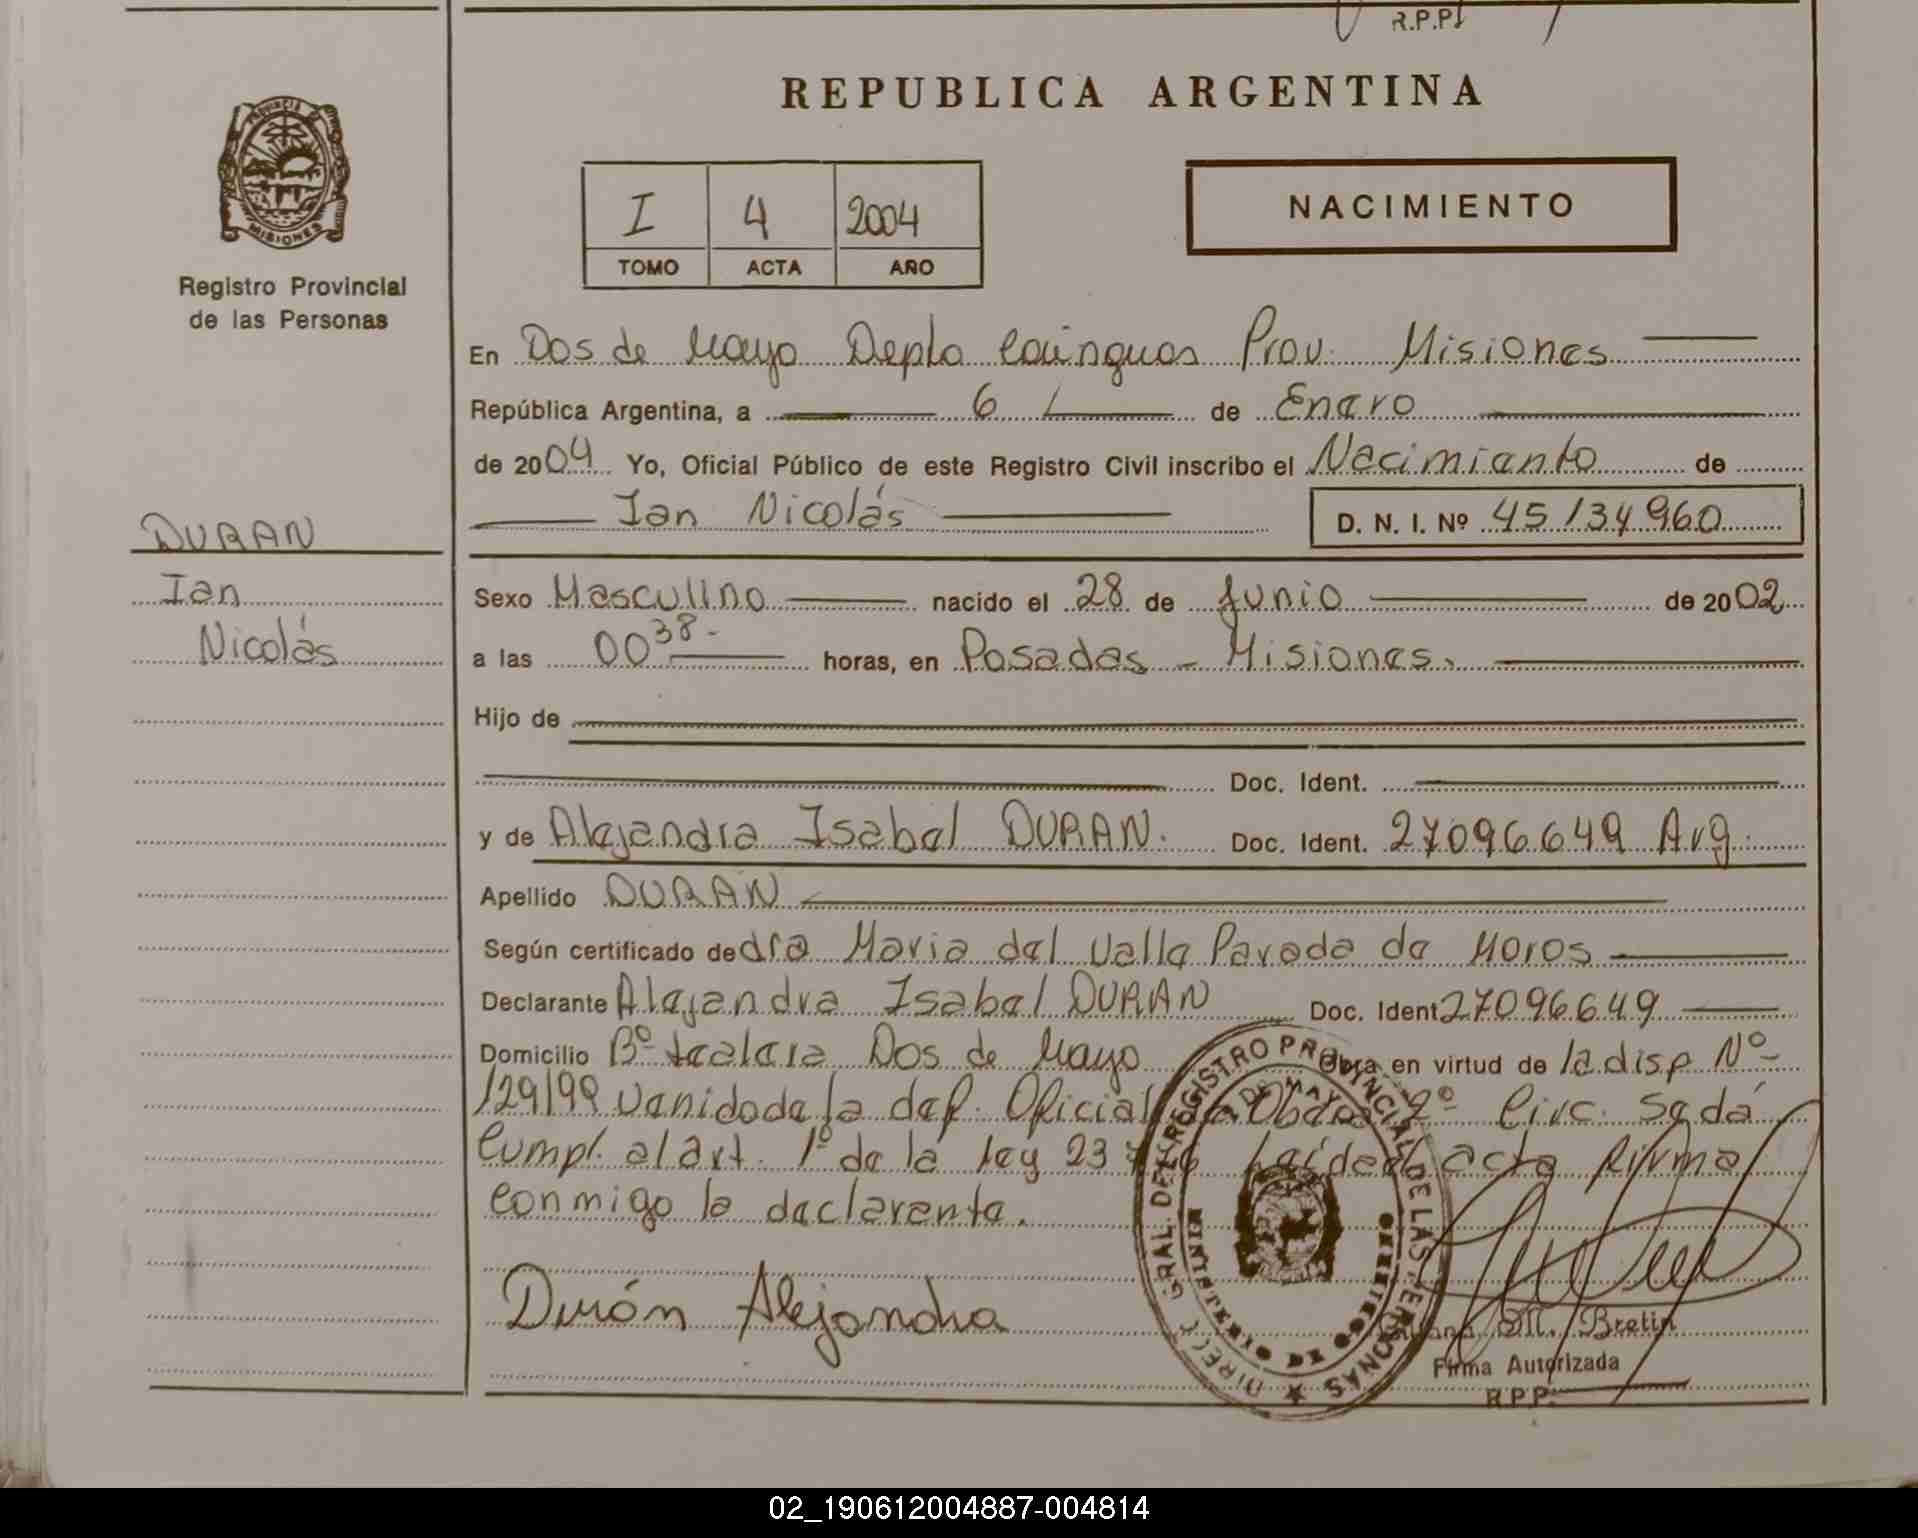 R.P.P.
REPUBLICA ARGENTINA
PROVINCIA DE MISIONES
Registro Provincial
de las Personas
I 4 2004
TOMO ACTA AÑO
NACIMIENTO
En Dos de Mayo Depto Cainguas Prov. Misiones
República Argentina, a 6 de Enero
de 2004 Yo, Oficial Público de este Registro Civil inscribo el Nacimiento de
Ian Nicolás D. N. I. Nº 45134960
DURAN
Ian
Nicolás
Sexo Masculino nacido el 28 de Junio de 2002
a las 00 38 horas, en Posadas - Misiones.
Hijo de
Doc. Ident.
y de Alejandra Isabel DURAN. Doc. Ident. 27096649 Arg.
Apellido DURAN
Según certificado de dra Maria del Valle Parada de Moros
Declarante Alejandra Isabel DURAN Doc. Ident 27096649
Domicilio Bº Dos de Mayo Obra en virtud de la disp Nº
129/99 Venido de la def. Oficial Oberá 2º Circ. Se dá
Cumpl. al art. 1º de la ley 23 Leída el acta firma
conmigo la declarante.
Durán Alejandra
DIREC. GRAL. DEL REGISTRO PROVINCIAL DE LAS PERSONAS
2 DE MAYO
M. Bretin
Firma Autorizada
R.P.P.
02_190612004887-004814